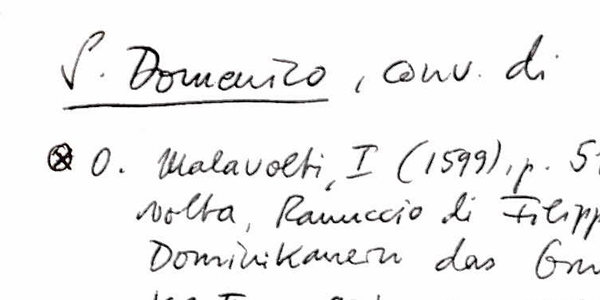 S. Domenico, conv. di
⊗ O. Malavolti, I (1599), p. 5
volta, Ranuccio di Filipp
Dominikanern das